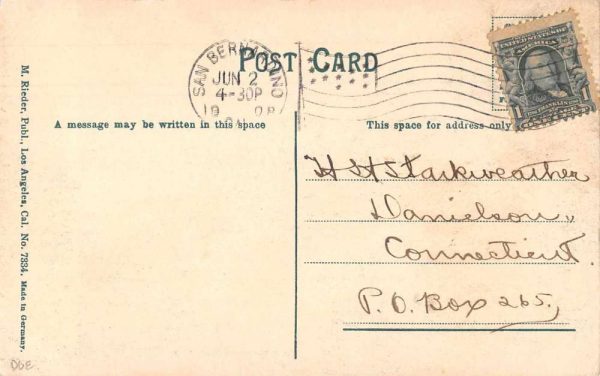 POST CARD
SAN BERNARDINO
JUN 2
4-30P
CAL.
UNITED STATES OF AMERICA
FRANKLIN
1
A message may be written in this space
This space for address only
H H Starkweather
Danielson,
Connecticut.
P.O. Box 265,
M. Rieder, Publ., Los Angeles, Cal. No. 7334. Made in Germany.
DGE